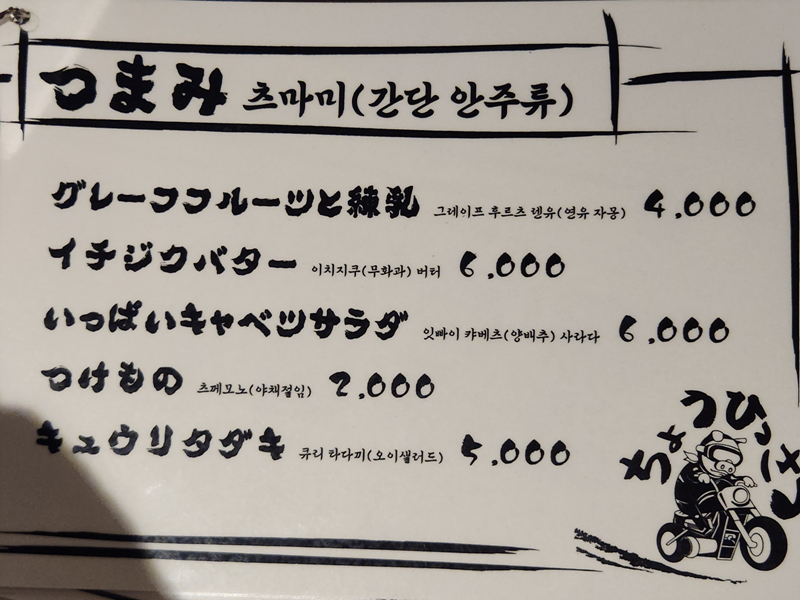 つまみ 츠마미(간단 안주류)
グレープフルーツと練乳 그레이프 후르츠 렌유(연유 자몽) 4,000
イチジクバター 이치지쿠(무화과) 버터 6,000
いっぱいキャベツサラダ 잇빠이 캬베츠(양배추) 사라다 6,000
つけもの 츠께모노(야채절임) 2,000
キュウリタダキ 큐리 타다끼(오이샐러드) 5,000